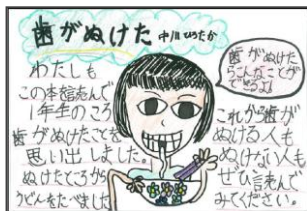 歯がぬけた 中川ひろたか
わたしも
この本を読んで
1年生のころ
歯がぬけたことを
思い出しました。
ぬけたところから
うどんをたべました
歯がぬけた
らこんなことが
できるよ!
これから歯が
ぬける人も
ぬけない人も
ぜひ読んで
みてください。